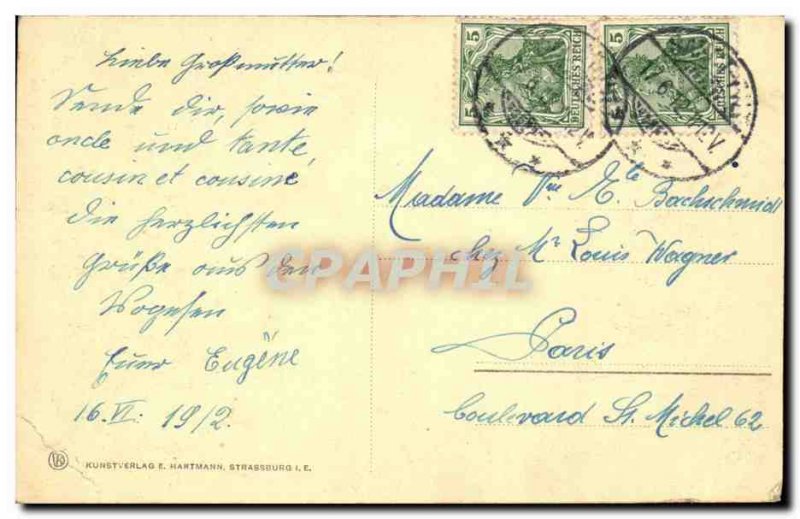 Liebe Großmutter!
Sende dir, sowie
oncle und tante,
cousin et cousine
die herzlichsten
Grüße aus den
Vogesen
Euer Eugène
16.VI. 1912.
KUNSTVERLAG E. HARTMANN, STRASSBURG I. E.
5 5 DEUTSCHES REICH
5 5 DEUTSCHES REICH
Madame Vve E^te Bachschmidt
chez Mr Louis Wagner
Paris
boulevard St. Michel 62
CPAPHIL